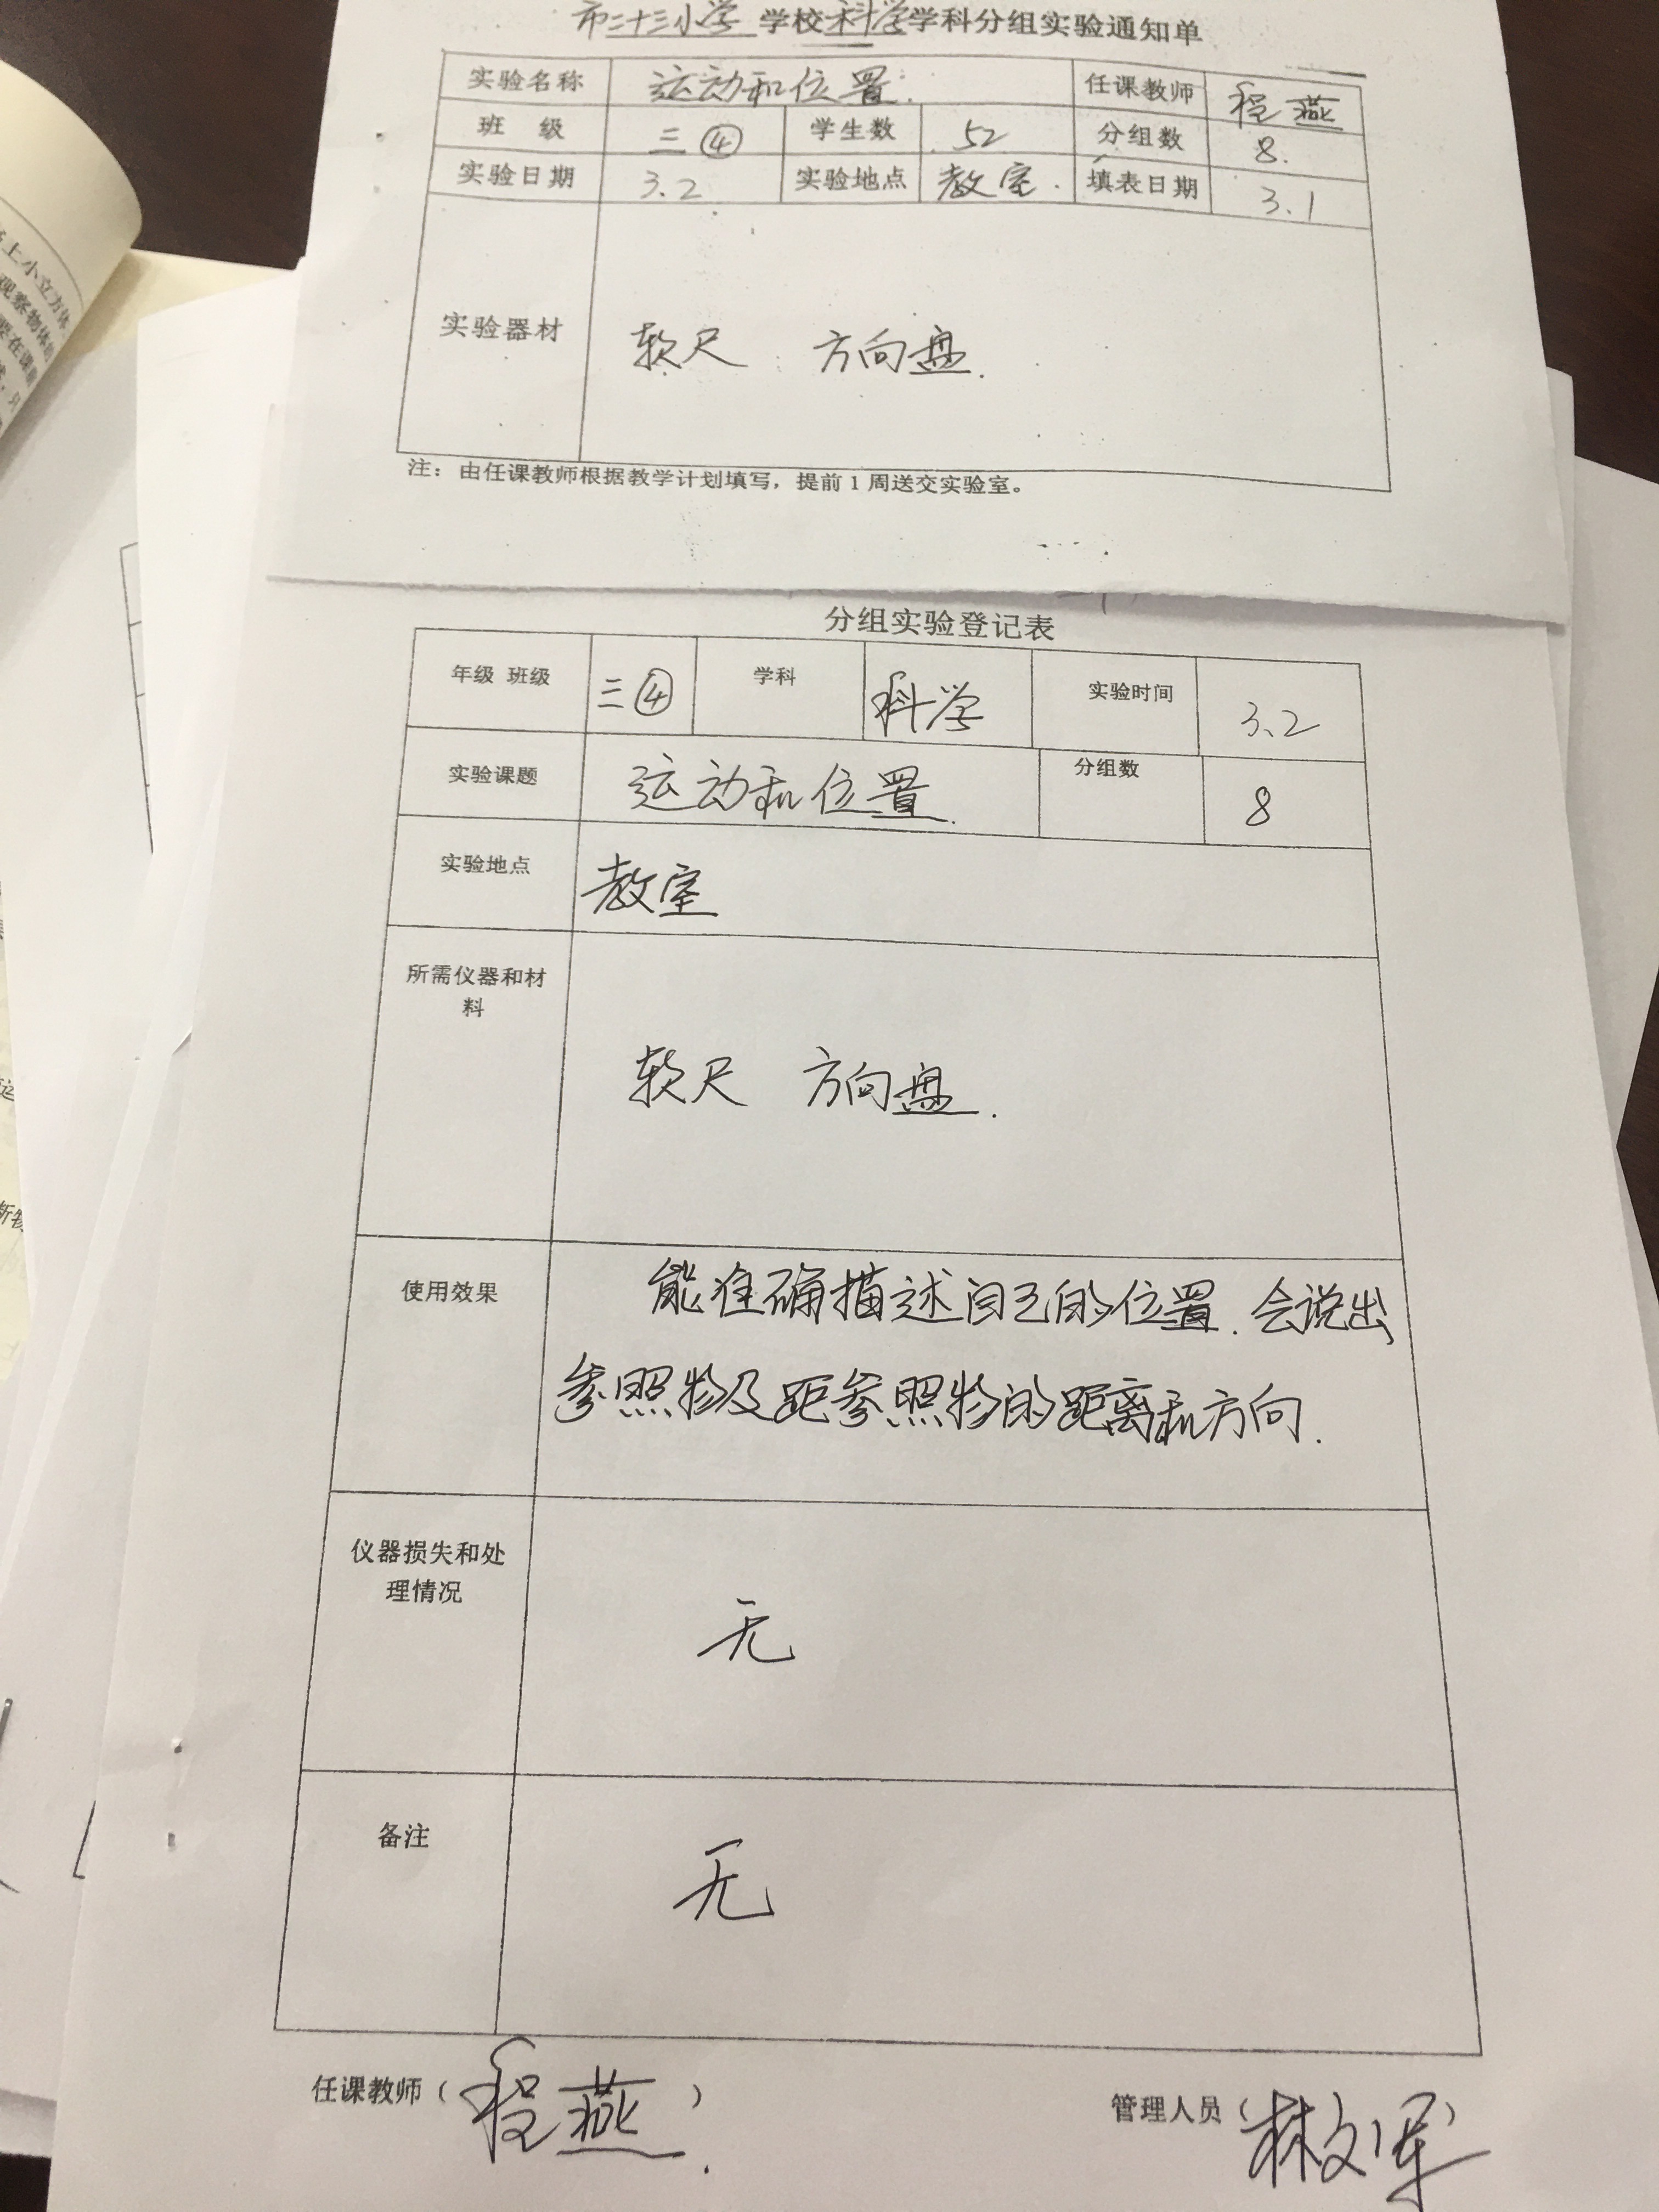 市二十三小学 学校 科学 学科分组实验通知单
实验名称 运动和位置. 任课教师 程燕
班 级 三④ 学生数 52 分组数 8.
实验日期 3.2 实验地点 教室. 填表日期 3.1
实验器材 软尺 方向盘.
注：由任课教师根据教学计划填写，提前1周送交实验室。
分组实验登记表
年级 班级 三④ 学科 科学 实验时间 3.2
实验课题 运动和位置. 分组数 8
实验地点 教室
所需仪器和材
料
软尺 方向盘.
使用效果
能准确描述自己的位置. 会说出
参照物及距参照物的距离和方向.
仪器损失和处
理情况
无
备注
无
任课教师（程燕.）
管理人员（林文军）
上小立方体
观察物体的